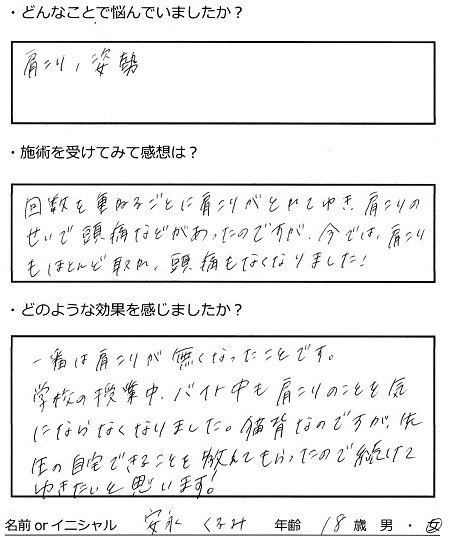 ・どんなことで悩んでいましたか？
肩こり、姿勢
・施術を受けてみて感想は？
回数を重ねるごとに肩こりがとれてゆき、肩こりの
せいで頭痛などがあったのですが、今では、肩こり
もほとんど取れ、頭痛もなくなりました！
・どのような効果を感じましたか？
一番は肩こりが無くなったことです。
学校の授業中、バイト中も肩こりのことを気
にならなくなりました。猫背なのですが、先
生の自宅できることを教えてもらったので続けて
ゆきたいと思います！
名前 or イニシャル 安永 くるみ 年齢 18 歳 男 ・ 女